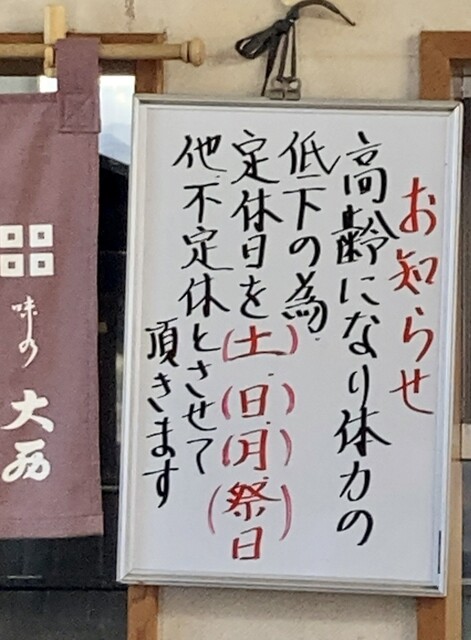 お知らせ
高齢になり体力の
低下の為
定休日を(土)(日)(月)(祭日)
他不定休とさせて
頂きます
味の
大西